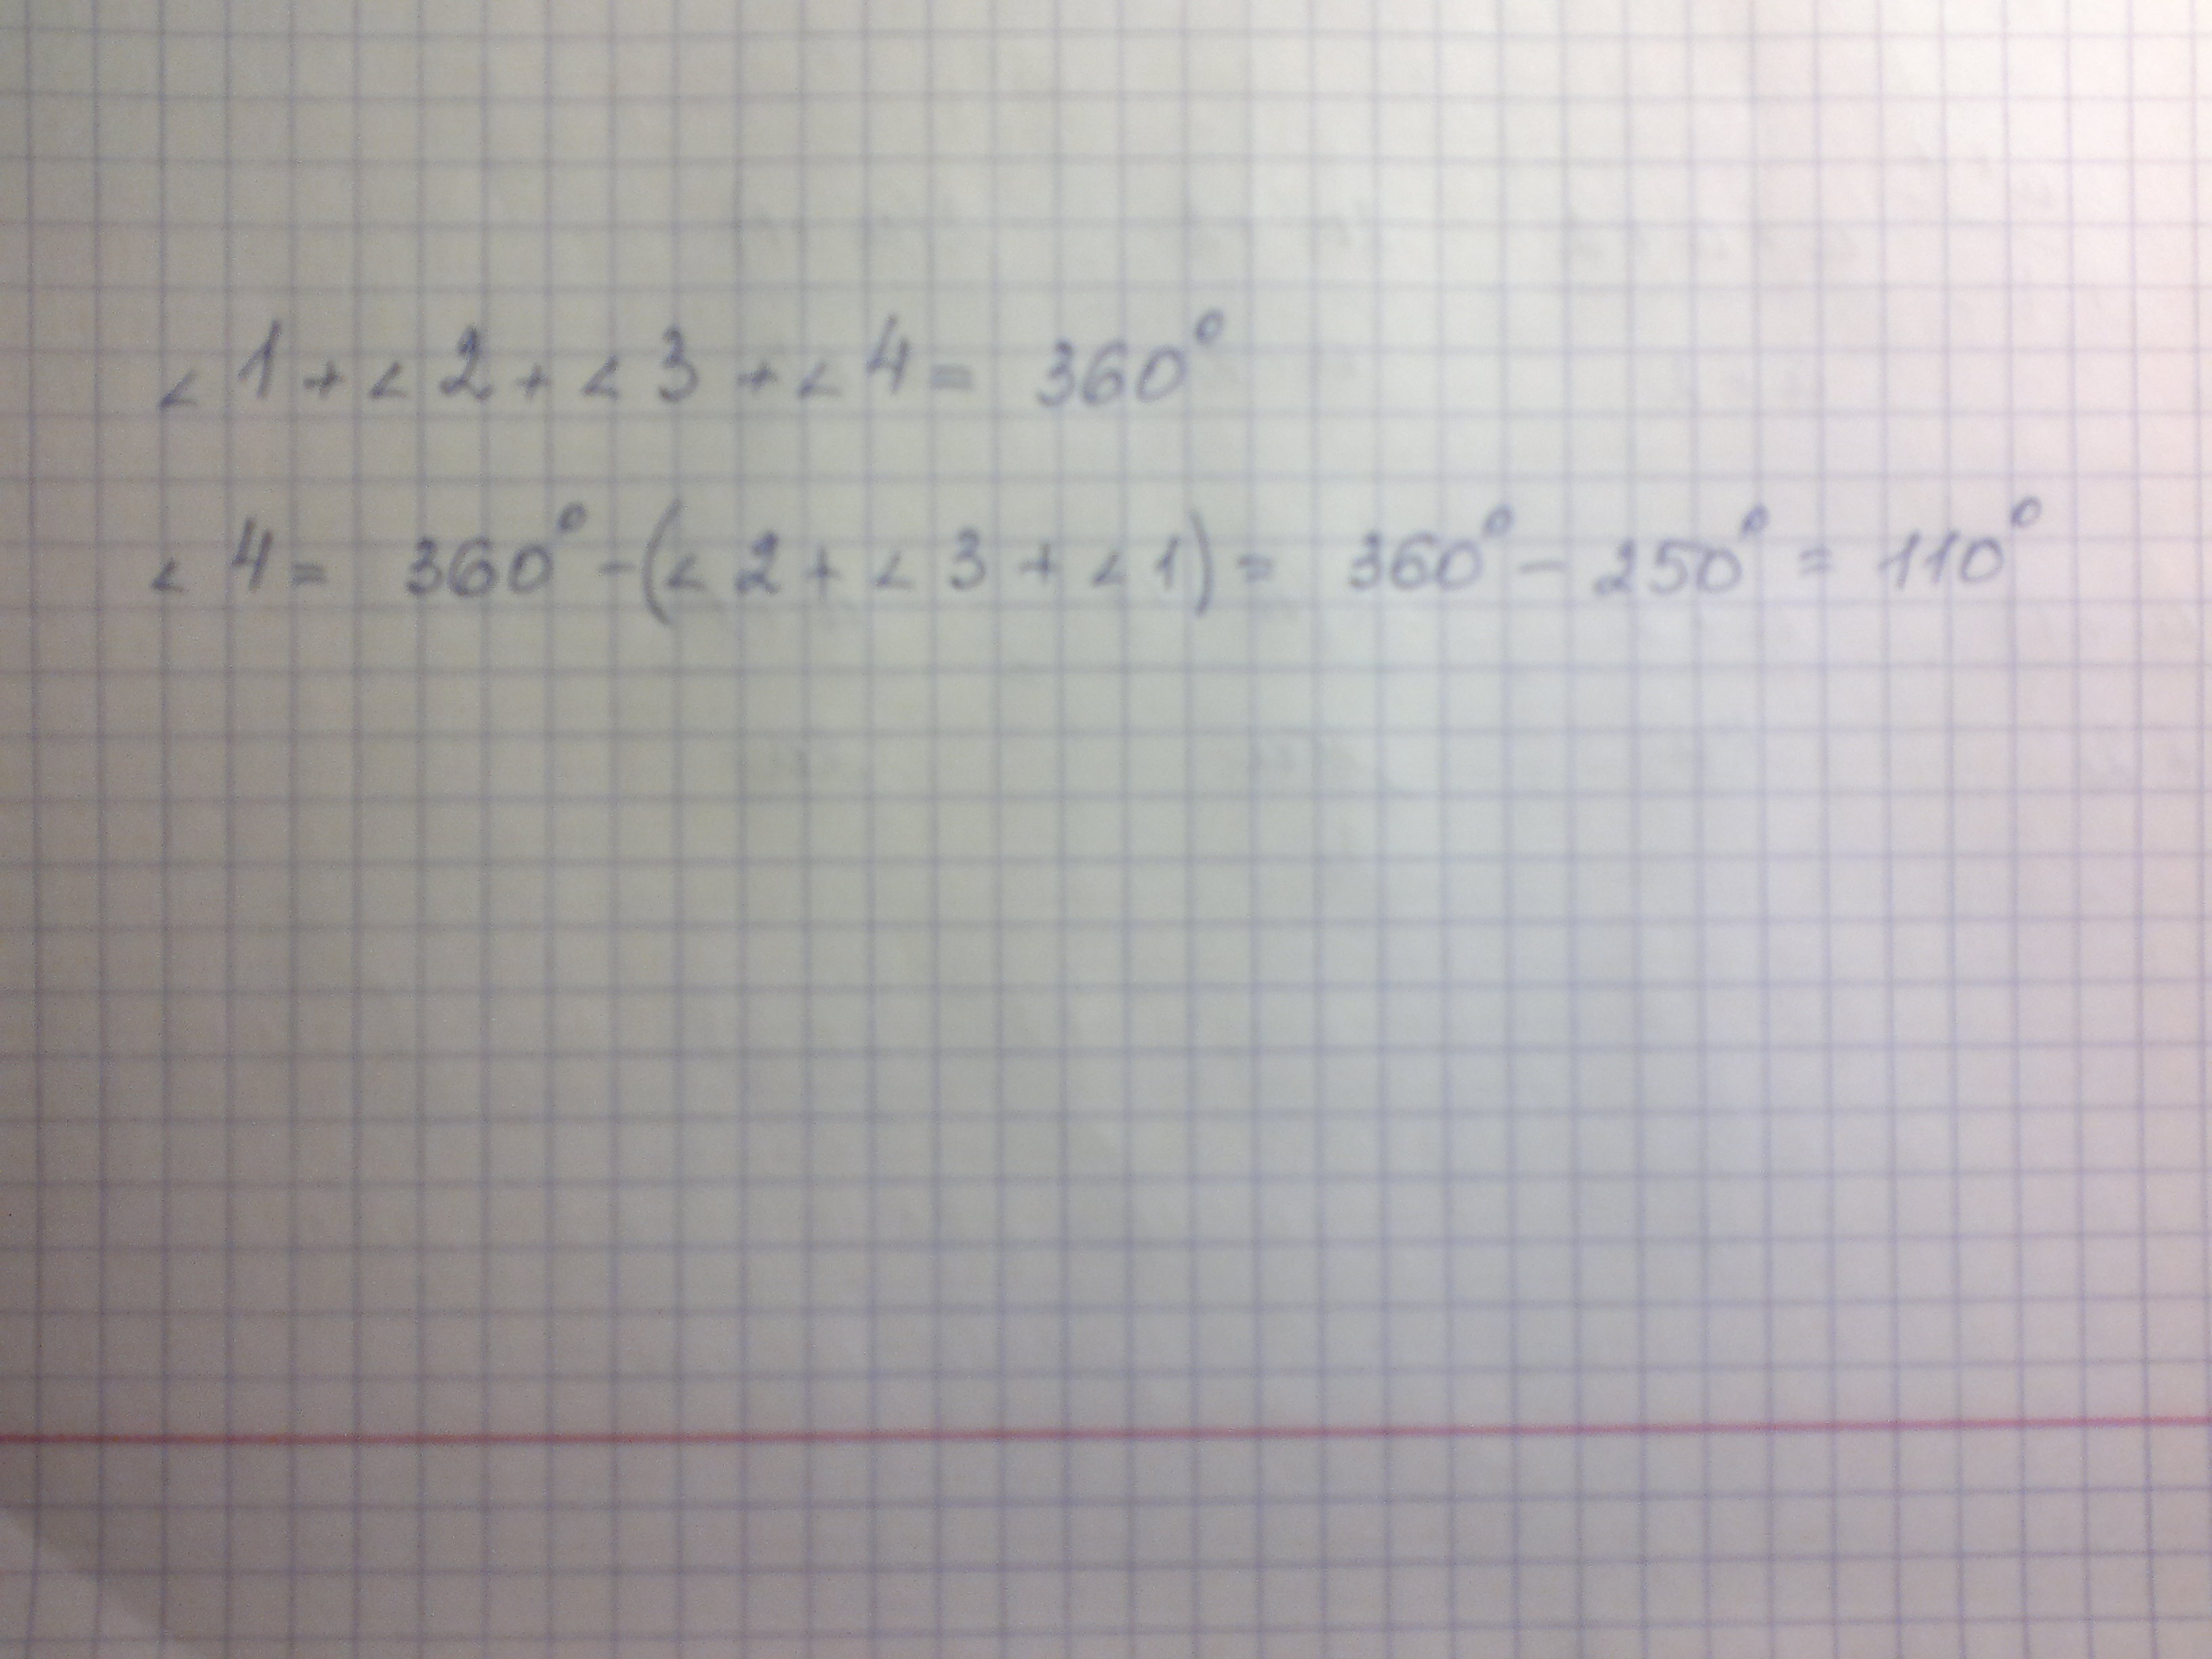 ∠1+∠2+∠3+∠4= 360°
∠4= 360°-(∠2+∠3+∠1)= 360°-250°=110°